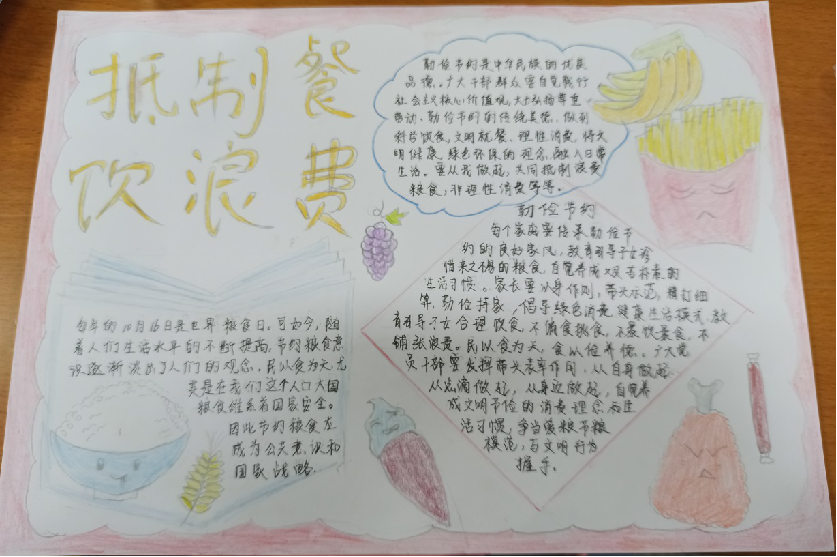 抵制餐
饮浪费
勤俭节约是中华民族的优良
品德。广大干部群众要自觉践行
社会主义核心价值观,大力弘扬尊重
劳动、勤俭节约的传统美德,做到
科学饮食,文明就餐,理性消费,将文
明健康,绿色环保的观念,融入日常
生活。要从我做起,共同抵制浪费
粮食,非理性消费等等。
勤俭节约
每个家庭要培养勤俭节
约的良好家风,教育引导子女珍
惜来之不易的粮食,自觉养成艰苦朴素的
生活习惯。家长要以身作则,带头示范,精打细
算,勤俭持家,倡导绿色消费健康生活模式,教
育引导子女合理饮食,不偏食挑食,不暴饮暴食,不
铺张浪费。民以食为天,食以俭养德。广大党
员干部要发挥带头表率作用,从自身做起
从点滴做起,从身边做起,自觉养
成文明节俭的消费理念和生
活习惯,争当爱粮节粮
模范,与文明行为
握手。
每年的10月16日是世界粮食日。可如今,随
着人们生活水平的不断提高,节约粮食意
识逐渐淡出了人们的观念。民以食为天,尤
其是在我们这个人口大国
粮食维系着国家安全。
因此节约粮食应
成为公共意识和
国家战略.